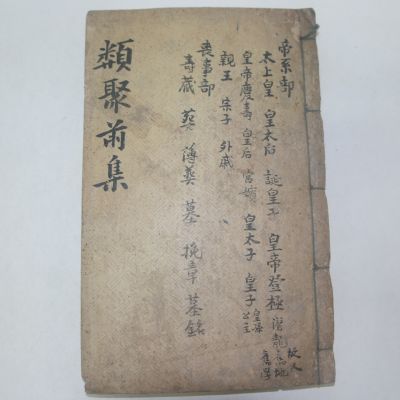 帝系部
太上皇 皇太后 誕皇子 皇帝登極 潛龍舊地 故人 舊學
皇帝慶壽 皇后 宮嬪 皇太子 皇子 皇孫 公主
親王 宗子 外戚
喪事部
壽藏 葬 薄葬 墓 挽章 墓銘
類聚前集